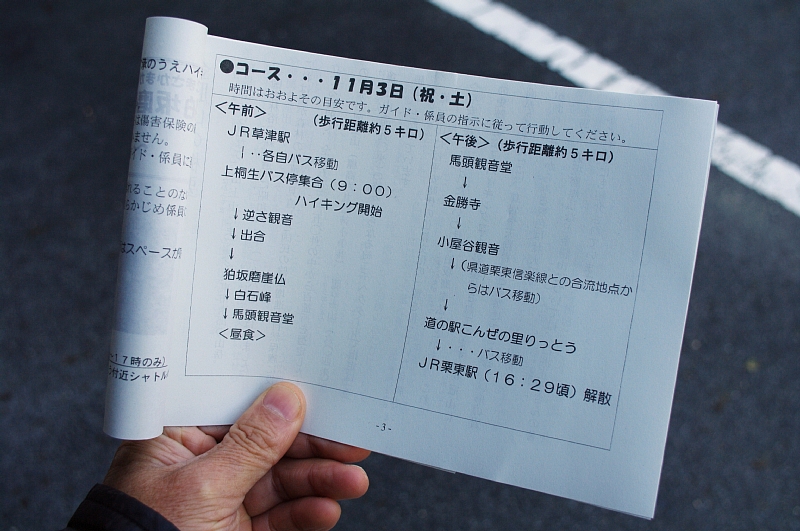 のうえハイ
傷害保険の
ません。
イド・係員に
ることのな
らかじめ係員
スペースが
１７時のみ）
付近シャトル
●コース・・・１１月３日（祝・土）
時間はおおよその目安です。ガイド・係員の指示に従って行動してください。
＜午前＞
（歩行距離約５キロ）
ＪＲ草津駅
├・・各自バス移動
上桐生バス停集合（９：００）
ハイキング開始
↓逆さ観音
↓出合
↓
狛坂磨崖仏
↓白石峰
↓馬頭観音堂
＜昼食＞
＜午後＞（歩行距離約５キロ）
馬頭観音堂
↓
金勝寺
↓
小屋谷観音
↓（県道栗東信楽線との合流地点か
らはバス移動）
↓
道の駅こんぜの里りっとう
↓・・・バス移動
ＪＲ栗東駅（１６：２９頃）解散
-3-